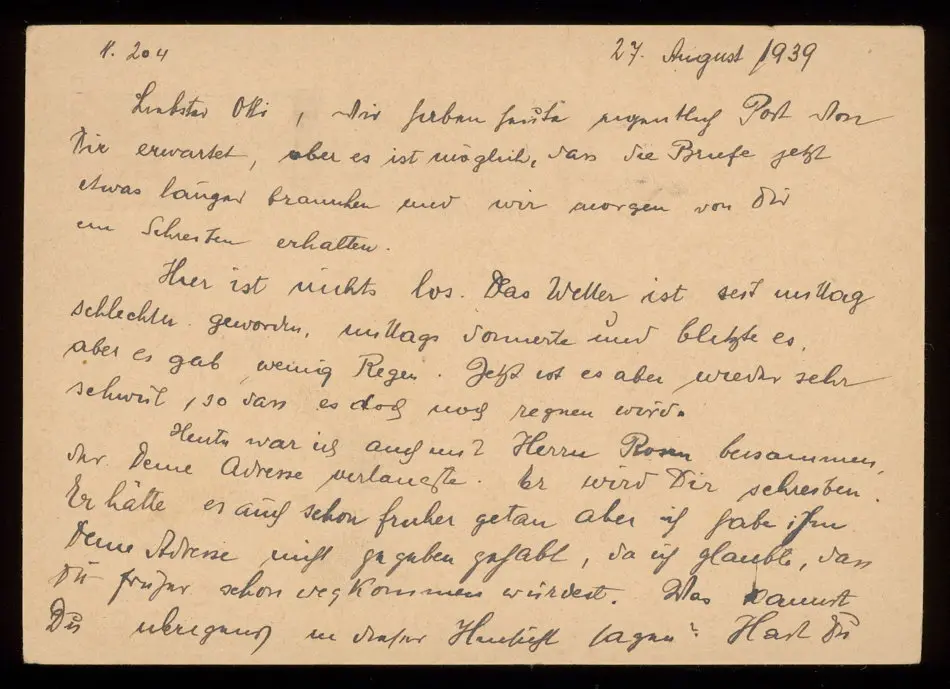 N. 204 27. August 1939
Liebster Otti, Wir haben heute eigentlich Post von
Dir erwartet, aber es ist möglich, dass die Briefe jetzt
etwas länger brauchen und wir morgen von Dir
ein Schreiben erhalten.
Hier ist nichts los. Das Wetter ist seit mittag
schlechter geworden, mittags donnerte und blitzte es,
aber es gab wenig Regen. Jetzt ist es aber wieder sehr
schwül, so dass es doch noch regnen wird.
Heute war ich auch mit Herrn Rosen beisammen,
der Deine Adresse verlangte. Er wird Dir schreiben.
Er hätte es auch schon früher getan aber ich habe ihm
Deine Adresse nicht gegeben gehabt, da ich glaubte, dass
Du früher schon wegkommen würdest. Was kannst
Du übrigens in dieser Hinsicht sagen? Hast Du